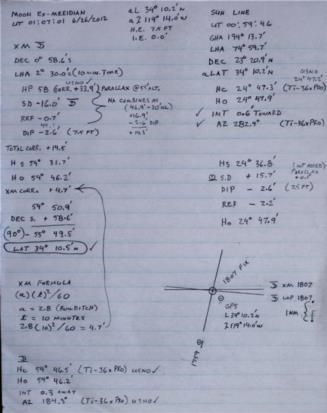 MOON EX-MERIDIAN
UT 01:07:01 6/26/2012
aL 34° 10.2'N
aλ 119° 14.0'W
H.E. 7.5 FT
I.E. 0.0'
XM
DEC 0° 58.6's
LHA 2° 30.0's (10 MIN. TOTAL)
HP 58 CORR. +33.9' PARALLAX @ 55° ALT.
SD -16.0'
REF -0.7'
DIP -2.6' (7.5 FT)
NA COMBINES AS
TOTAL CORR. +14.5'
Hs 54° 31.7'
Ho 54° 46.2'
XM CORR. +4.7'
54° 50.9'
DEC S. + 58.6'
90° - 55° 49.5'
LAT 34° 10.5'N ✓
XM FORMULA
(a)(t)²/60
a = 2.8 (BOWDITCH)
t = 10 MINUTES
2.8(10)²/60 = 4.7'
Hc 54° 46.5' (TI-36x PRO) USNO ✓
Ho 54° 46.2'
INT 0.3 AWAY
AZ 184.3° (TI-36x PRO) USNO ✓
SUN LINE
UT 00:59:46
GHA 194° 13.7'
LHA 74° 59.7'
DEC 23° 20.9'N
aLAT 34° 10.2'N
Hc 24° 47.3' (TI-36x PRO)
Ho 24° 47.9'
INT 0.6 TOWARD
AZ 282.9° (TI-36x PRO)
Hs 24° 36.8'
S.D + 15.7'
DIP - 2.6' (7.5 FT)
REF - 2.2'
Ho 24° 47.9'
1807 FIX
XM 1807
LOP 1807
GPS
L 34° 10.2'N
λ 119° 14.0'W
1NM